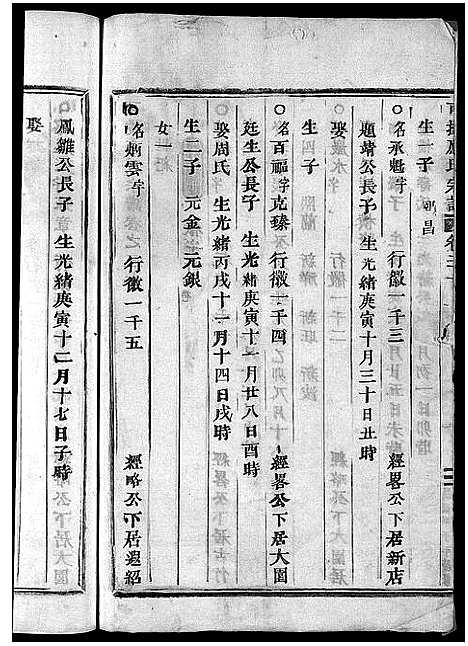 氏宗譜 卷三
生一子 昌
名承魁字 行徽一千三 經畧公下居新店
題靖公長子 生光緒庚寅十月三十日丑時
娶
生四子
名百福字克臻 行徽一千四 經畧公下居大園
廷生公長子 生光緒庚寅十一月廿八日酉時
娶周氏 生光緒丙戌十一月十四日戌時
生二子 元金 元銀
女一
名炳雲字 行徽一千五 經略公下居還紹
鳳雛公長子 生光緒庚寅十二月十七日子時
娶